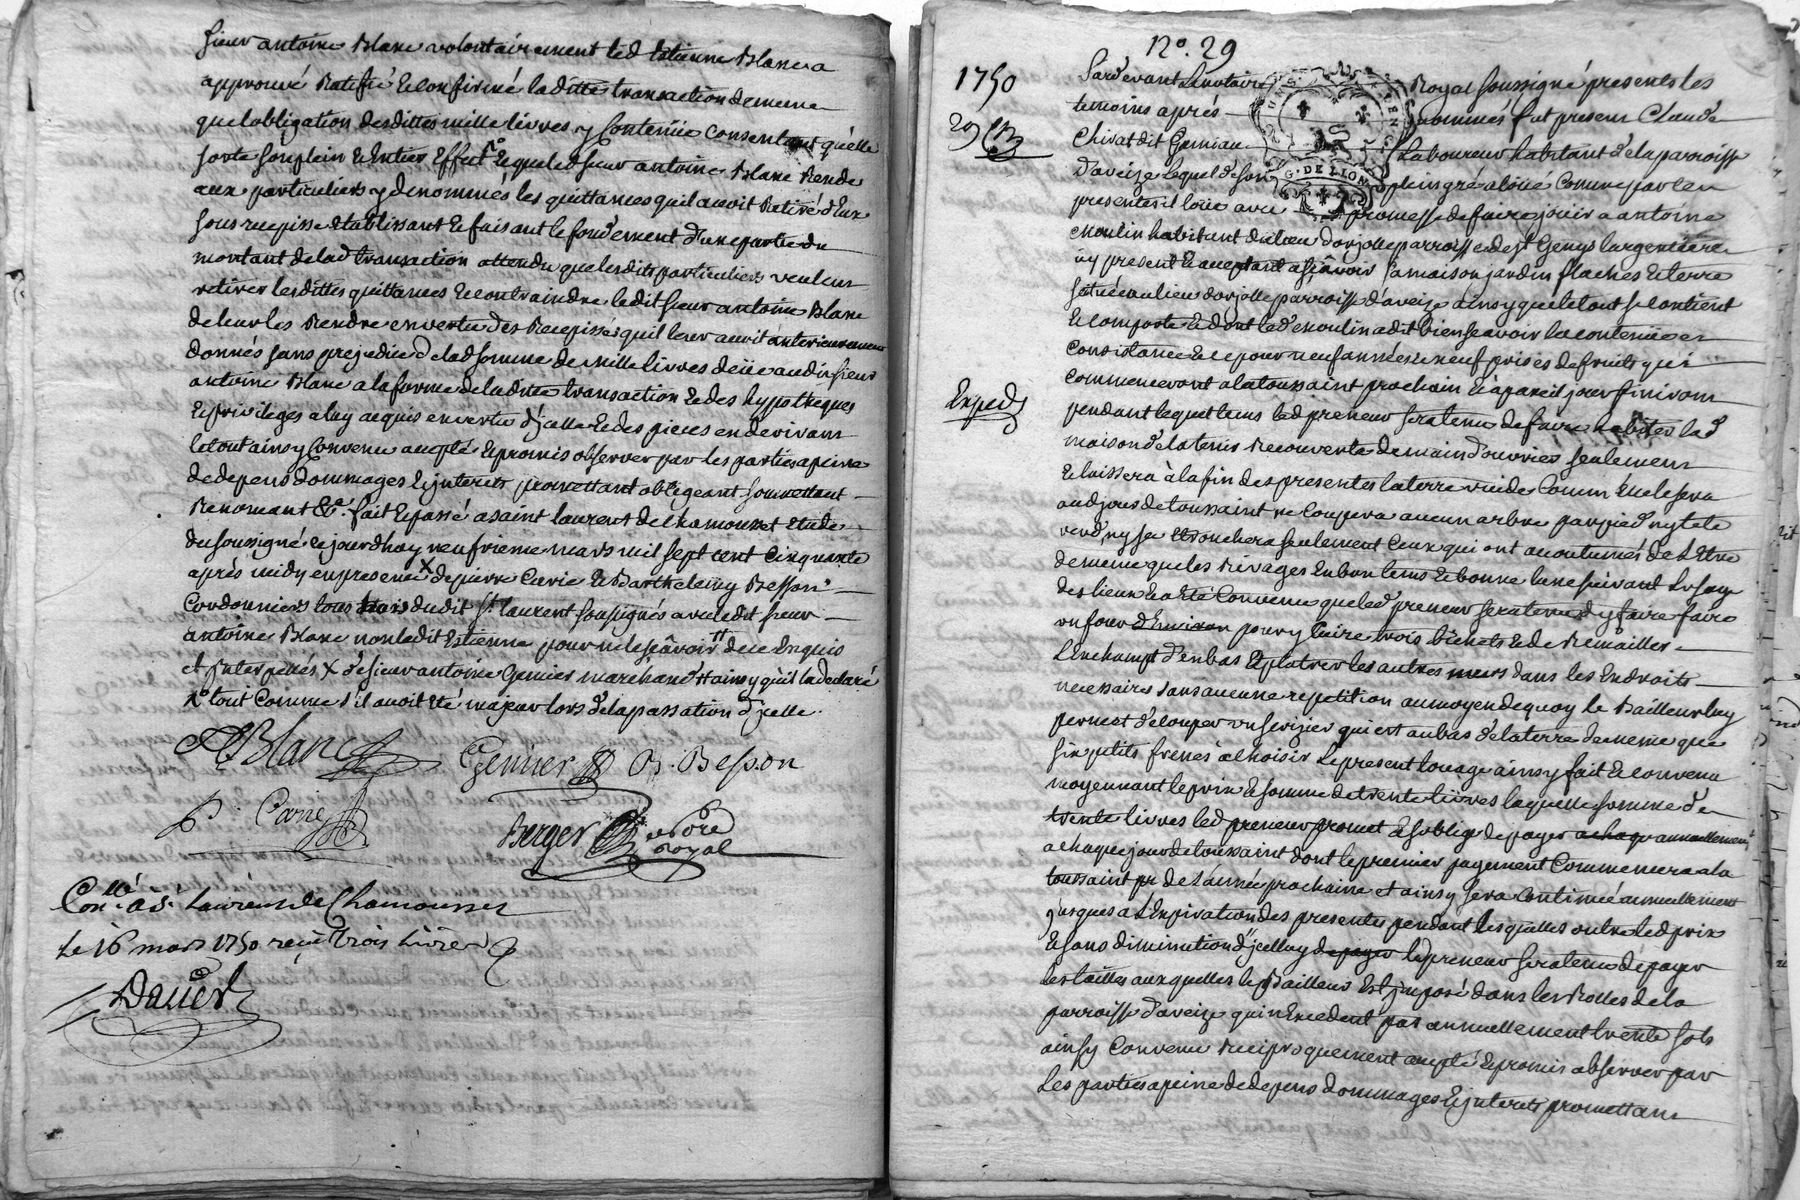 sieur antoine Blanc volontairement led Estienne Blanc a
approuvé Ratifié & confirmé laditte transaction de meme
que l'obligation desdittes mille livres y contenüe consentant qu'elle
sorte son plein & Entier Effect & que led sieur antoine Blanc Rende
aux particuliers y denommés les quittances quil avoit Retiré d'Eux
sous recepisse Etablissant & faisant le fondement d'une partie du
montant de lad transaction attendu que lesdits particuliers veulent
retirer lesdittes quittances & contraindre ledit sieur antoine Blanc
de leur les Rendre en vertu des Recepissés quil leur avoit antérieurement
donnés sans prejudice de lad somme de mille livres deüe audit sieur
antoine Blanc a la forme de laditte transaction & des hypotheques
& privileges a luy acquis en vertu d'jcelle & des pieces en derivant
le tout ainsy Convenu accepté & promis observer par les parties a peine
de depens dommages & jnterets promettant obligeant soumettant
Renonçant &c. fait & passé a saint laurent de chamousset Etude
du soussigné ce jourdhuy neufvieme mars mil sept cent cinquante
après midy en presence X de pierre Carrie & Barthelemy Besson
Cordonniers tous dudit St laurent soussignés avec ledit sieur
antoine Blanc non ledit Estienne pour ne le sçavoir # de ce Enquis
et jnterpellés X de sieur antoine Genier marchand # ainsy qu'il la declaré
tout comme s'il avoit Eté majeur lors de la passation d'jcelle.
A Blanc Genier B. Besson
P. Carrie
Berger no.re Royal
Con.lé a St Laurens de Chamousset
le 16 mars 1750 reçu trois livres
Dauer
N°. 29
1750
Pardevant le notaire Royal soussigné presents les
temoins après nommés fut present Claude
29
Chirat dit laboureur habitant de la parroisse
G. DE LION
d'aveize lequel de son plein gré a loüé comme par ces
presentes il loüe avec promesse de faire joüir a antoine
moulin habitant du lieu d'orjolle parroisse de st Genys largentiere
cy present & acceptant asçavoir sa maison jardin & terre
située au lieu d'orjolle parroisse d'aveize ainsy que le tout se contient
& comporte & dont led moulin a dit bien scavoir la contenüe &
consistance & ce pour neuf années & neuf prises de fruits qui
commenceront a la toussaint prochain & a pareil jour finiront
Exped
pendant lequel tems led preneur sera tenu de faire habiter lad
maison de la tenir Recouverte de main d'ouvrier seulement
& laissera à la fin des presentes la terre vuide comm'Elle sera
aud jour de toussaint ne coupera aucun arbre par pied ny tete
verd ny sec Ebrouchera seulement ceux qui ont accoutumés de l'Etre
de meme que les Rivages En bon tems & bonne lune suivant l'usage
des lieux a Eté Convenu que led preneur sera tenu d'y faire faire
un four d'Environ pour y cuire trois bichets & de
Lenchampt d'en bas & platrer les autres murs dans les Endroits
necessaires sans aucune repetition au moyen de quoy le Bailleur luy
permet de couper un serizier qui est au bas de la terre de meme que
six petits frenes à choisir le present louage ainsy fait & convenu
moyennant le prix & somme de trente livres laquelle somme de
trente livres led preneur promet & soblige de payer a chaqu annuellement
a chaque jour de toussaint dont le premier payement Commencera a la
toussaint pr de l'année prochaine et ainsy sera continué annuellement
jusques a l'Expiration des presentes pendant lesquelles outre led prix
& sans diminution d'jcelluy de payer le preneur sera tenu de payer
les tailles auxquelles le Bailleur Est jmposé dans les Rolles de la
parroisse d'aveize qui n'Excedent pas annuellement trente sols
ainsy Convenu Reciproquement accepté & promis observer par
Les parties a peine de depens dommages & jnterets promettant